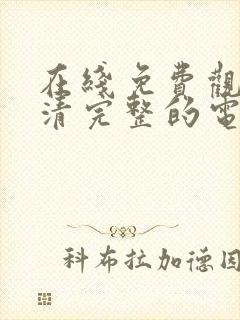 在綫免費觀
清完整的電
科布拉加德因